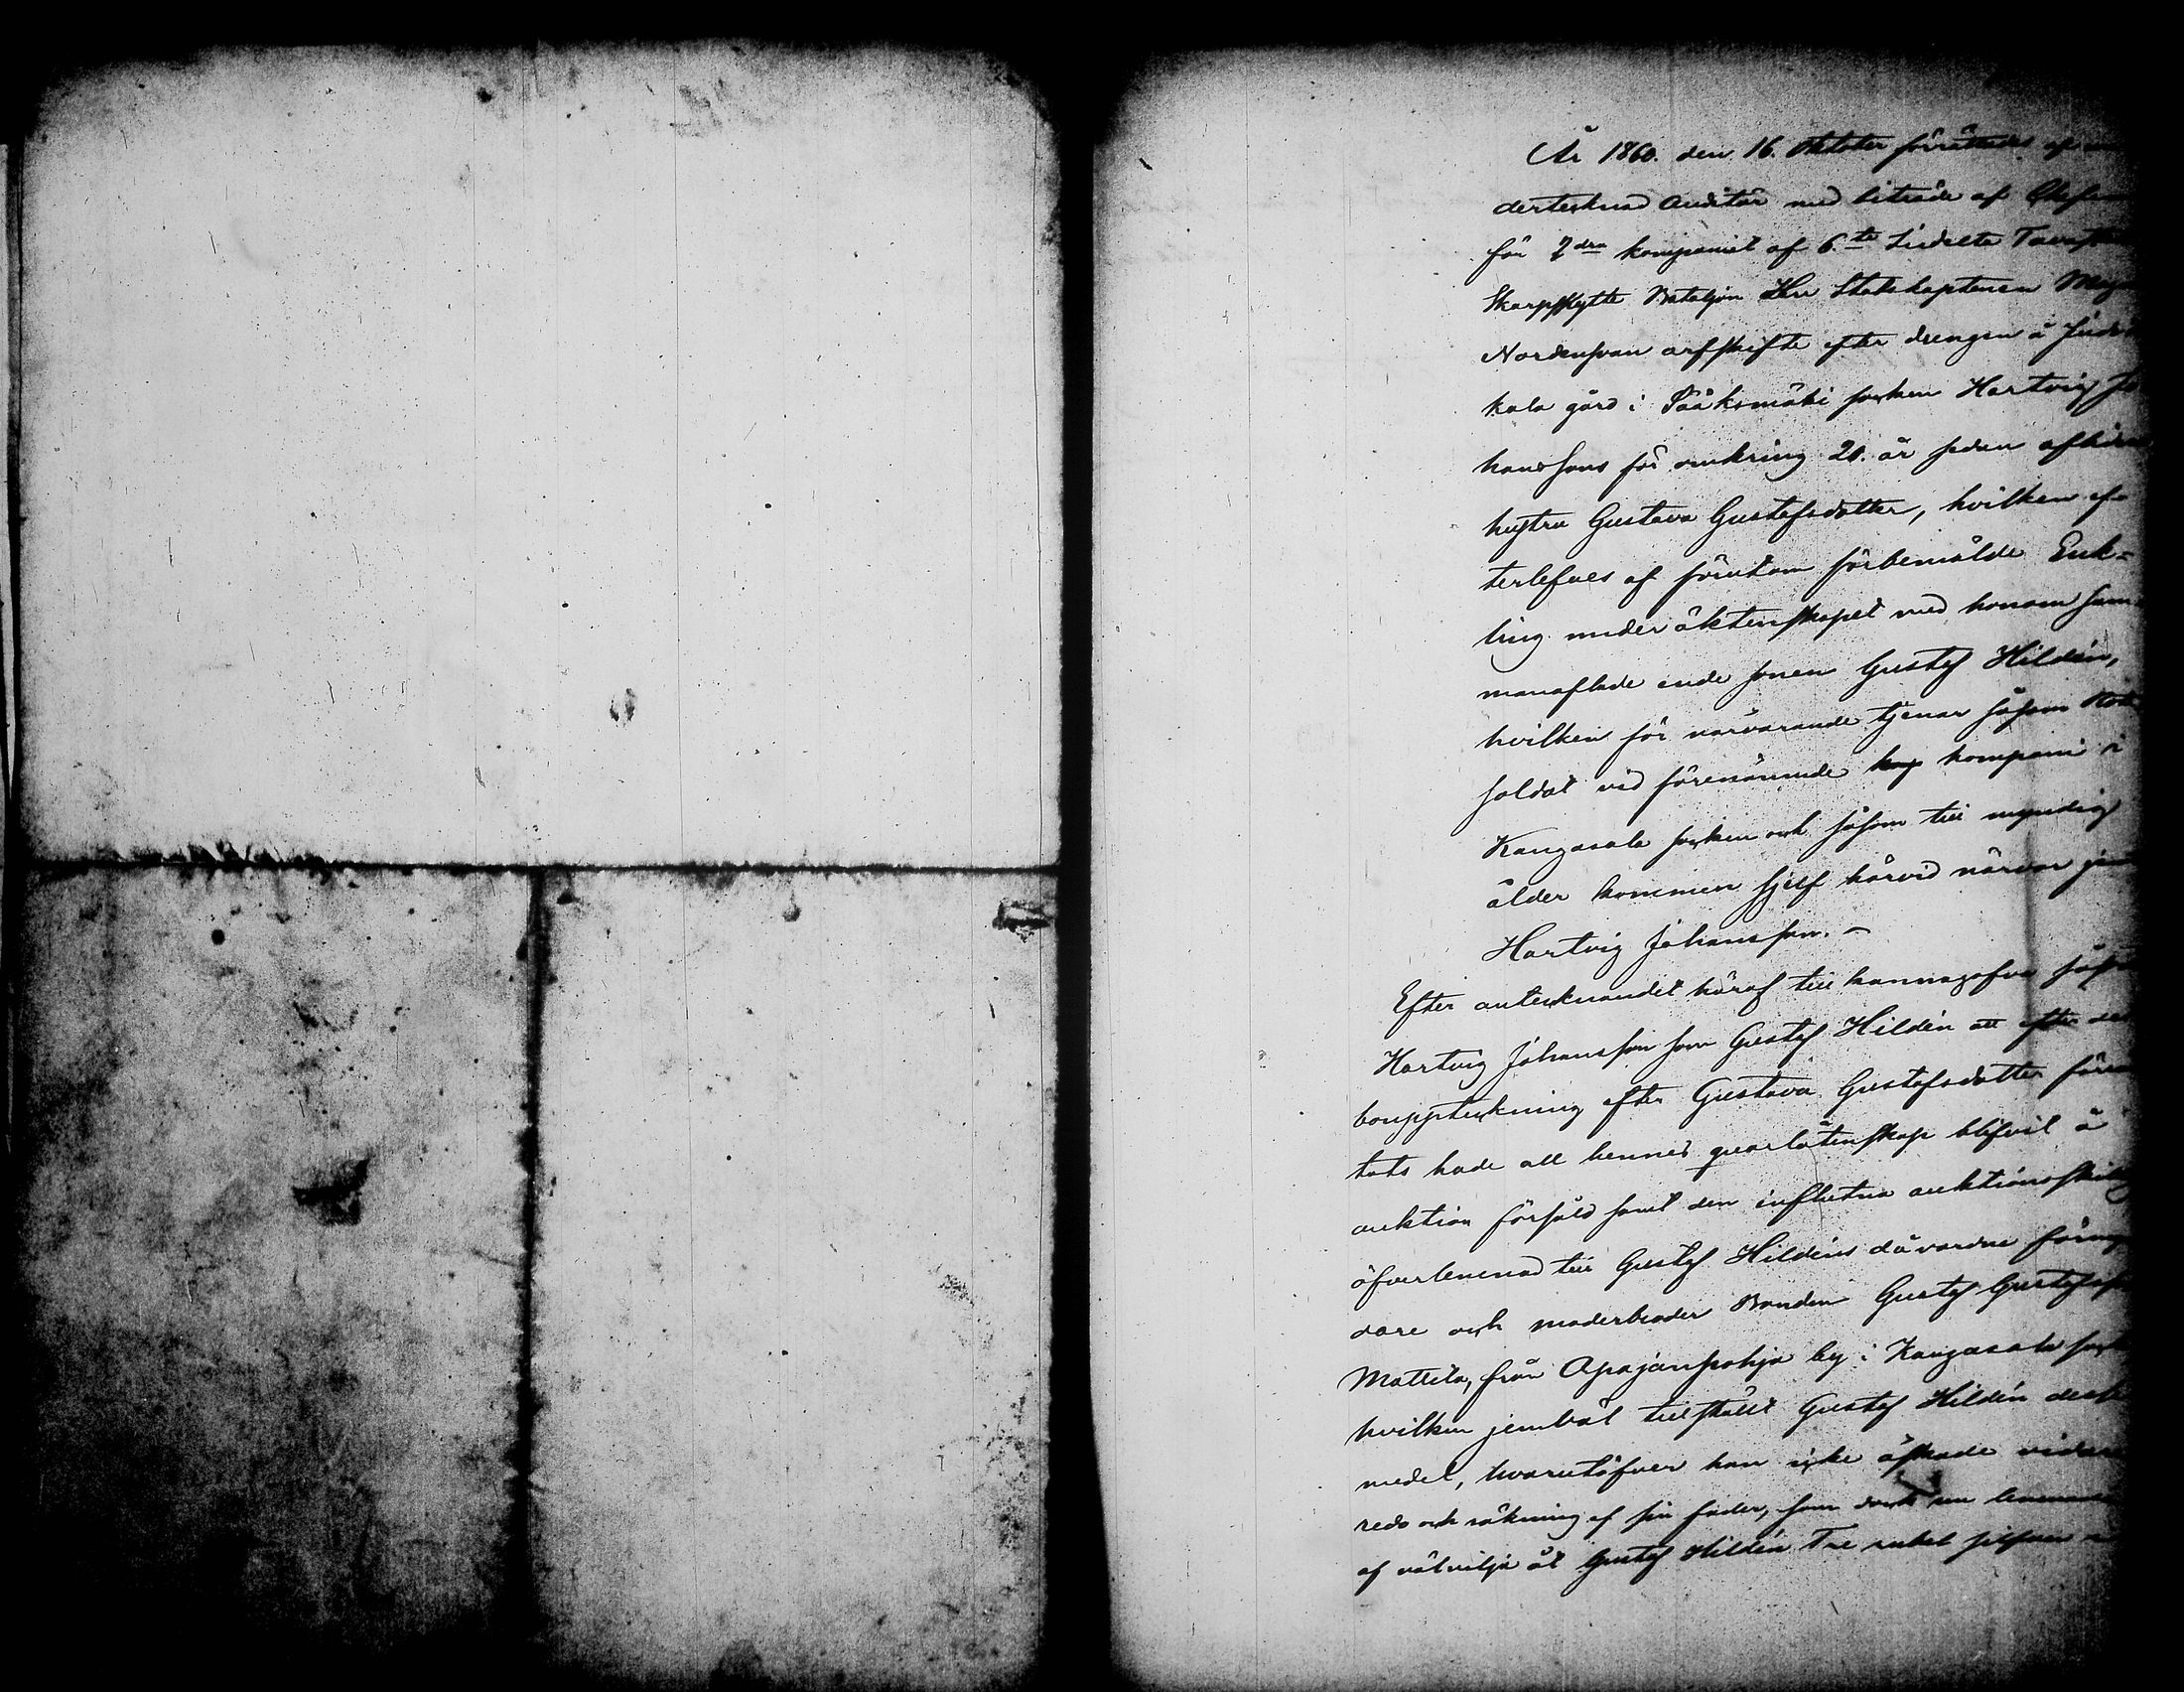 År 1860. den 16. Oktober förrättades af un
dertecknad Auditör med biträde af Chefen
för 2dra kompaniet af 6.te Indelta Tavast
Skarpskytte Bataljon Herr Stabskaptenen Mag
Nordensvan arfskifte efter drengen å Jud
kala gård i Sääksmäki socken Hartvig Jo
hanssons för omkring 20. år sedan aflid
hustru Gustava Gustafsdotter, hvilken ef
terlefves af förutom förbemälde Enk=
ling under äktenskapet med honom sam
manaflade enda sonen Gustaf Hildén,
hvilken för närvarande tjenar såsom Rote
soldat vid förenämnde komp kompani i
Kangasala socken och såsom till myndig
ålder kommen sjelf härvid närvar jem
Hartvig Johansson. –
Efter antecknandet häraf till kännagåfvo såväl
Hartvig Johansson som Gustaf Hildén att efter det
bouppteckning efter Gustava Gustafsdotter förrät
tats hade all hennes qvarlåtenskap blifvit å
auktion försåld samt den influtna auktionsskilling
öfverlemnad till Gustaf Hildéns dåvarande förmyn
dare och moderbroder Bonden Gustaf Gustafsson
Mattila, från Apajanpohja by i Kangasala sock
hvilken jemväl tillställt Gustaf Hildén dessa
medel, hvarutöfver han icke äskade vidare
redo och räkning af sin fader, som dock nu lemnade
af välvilja åt Gustaf Hildén Tre rubel silfver